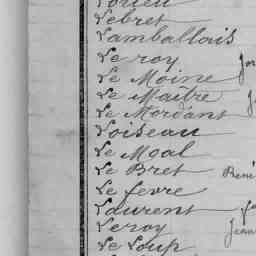 Lebret
Lamballais
Le roy
Le Moine
Le Maitre
Le Mordant
Loiseau
Le Moal
Le Bret René
Le fevre
Laurent
Leroy Jean
Le Loup